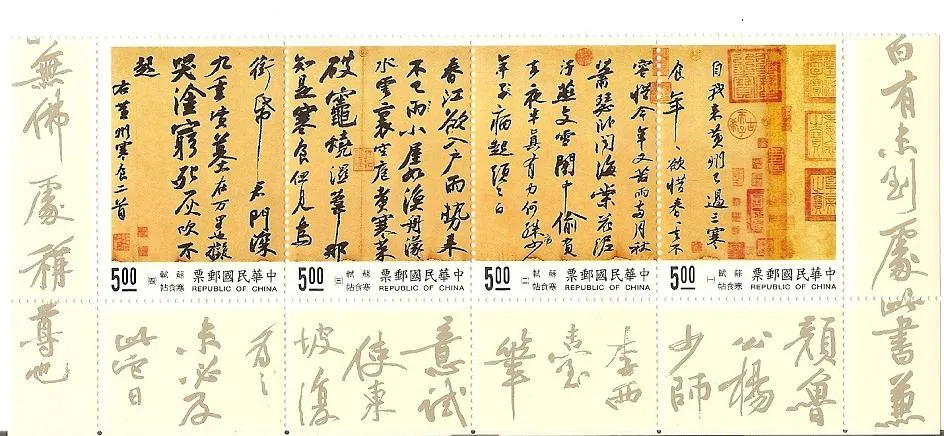 白有未到處此書兼
自我来黄州已過三寒
食年〻欲惜春〻去不
容惜今年又苦雨兩月秋
蕭瑟卧聞海棠花泥
汙燕支雪闇中偷負
去夜半真有力何殊少
年子病起須已白
春江欲入户雨勢来
不已雨小屋如漁舟濛〻
水雲裏空庖煮寒菜
破竈燒濕葦那
知是寒食但見烏
銜帋君門深
九重墳墓在万里也擬
哭塗窮死灰吹不
起
右黄州寒食二首
中華民國郵票
REPUBLIC OF CHINA
蘇軾寒食帖(一)
5.00
中華民國郵票
REPUBLIC OF CHINA
蘇軾寒食帖(二)
5.00
中華民國郵票
REPUBLIC OF CHINA
蘇軾寒食帖(三)
5.00
中華民國郵票
REPUBLIC OF CHINA
蘇軾寒食帖(四)
5.00
顏魯
公楊
少師
李西
臺
筆
意試
使東
坡復
為之
未必及
此它日
無佛處稱尊也